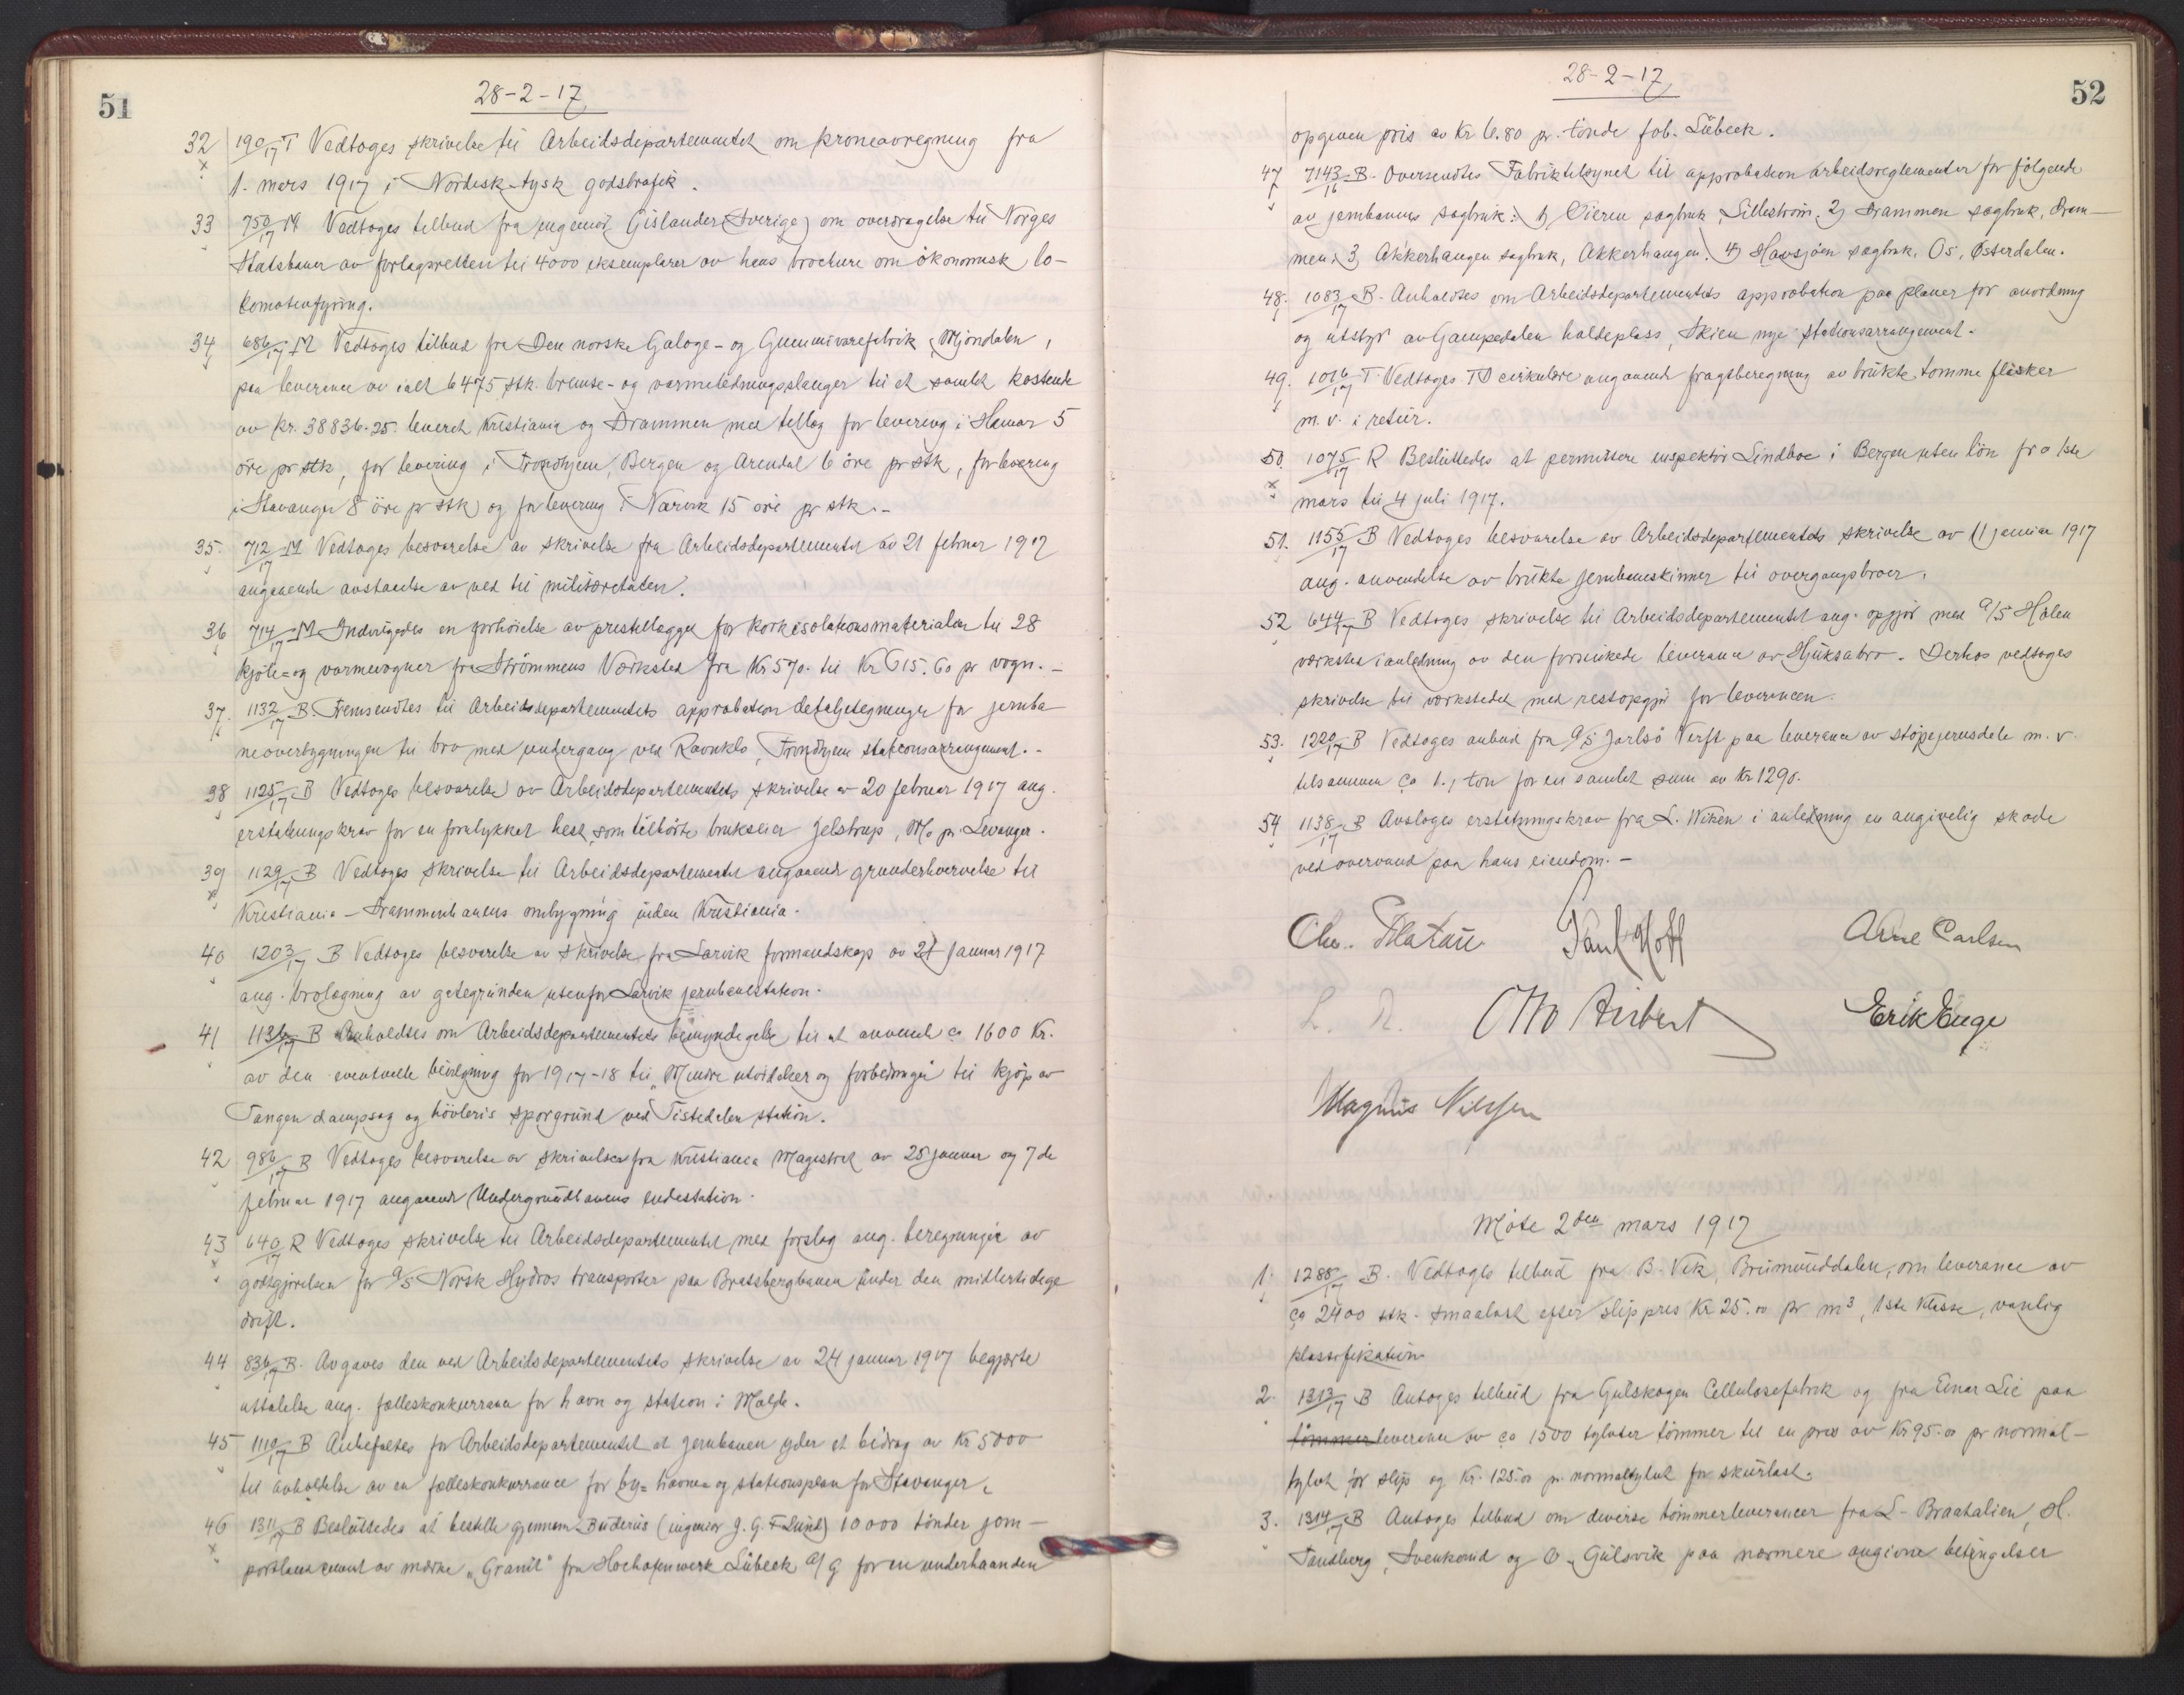 51
28-2-17
32 190/17 T Vedtoges skrivelse til Arbeidsdepartementet om kroneavregning fra
1. mars 1917 i Nordisk-tysk godstrafik.
33 750/17 M Vedtoges tilbud fra ingeniör Gislander (Sverige) om overdragelse til Norges
Statsbaner av forlagsretten til 4000 eksemplarer av hans brochure om ökonomisk lo-
komotivfyring.
34 686/17 M Vedtoges tilbud fra Den norske Galoge- og Gummivarefabrik, Mjöndalen,
paa leverance av ialt 6475 stk. bremse- og varmeledningsslanger til et samlet kostende
av kr. 38836.25. levert Kristiania og Drammen med tillæg for levering i Hamar 5
öre pr stk, for levering i Trondhjem, Bergen og Arendal 6 öre pr stk, for levering
i Stavanger 8 öre pr stk og for levering i Narvik 15 öre pr stk.-
35. 712/17 M Vedtoges besvarelse av skrivelse fra Arbeidsdepartementet av 21 februar 1917
angaaende avstaaelse av ved til militæretaten.
36 714/17 M Indvilgedes en forhöielse av pristillægget for korkisolationsmaterialer til 28
kjöle- og varmevogner fra Strömmens Værksted fra Kr 570. til Kr 615.60 pr vogn.-
37. 1132/17 B. Fremsendtes til Arbeidsdepartementets approbation detaljtegninger for jernba-
neoverbygningen til bro med undergang ved Ravnklo, Trondhjem stationsarrangement.-
38 1125/17 B Vedtoges besvarelse av Arbeidsdepartementets skrivelse av 20 februar 1917 ang.
erstatningskrav for en forulykket hest, som tilhörte brukseier Jelstrup, Mo pr. Levanger.
39 1129/17 B Vedtoges skrivelse til Arbeidsdepartementet angaaende grunderhvervelse til
Kristiania - Drammenbanens ombygning inden Kristiania.
40 1203/17 B Vedtoges besvarelse av skrivelse fra Larvik formandskap av 27 januar 1917
ang. brolægning av gategrunden utenfor Larvik jernbanestation.
41 1136/17 B Anholdtes om Arbeidsdepartementets bemyndigelse til at anvende ca 1600 kr.
av den eventuelle bevilgning for 1917-18 til "Mindre utvidelser og forbedringer" til kjöp av
Tangen dampsag og hövleris sporgrund ved Tistedalen station.
42 986/17 B Vedtoges besvarelse av skrivelser fra Kristiania Magistrat av 25 januar og 7de
februar 1917 angaaende Undergrundbanens endestation.
43 640/17 R Vedtoges skrivelse til Arbeidsdepartementet med forslag ang. beregningen av
godtgjörelsen for A/S Norsk Hydros transporter paa Bratsbergbanen under den midlertidige
drift.
44 836/17 B. Avgaves den ved Arbeidsdepartementets skrivelse av 24 januar 1917 begjærte
uttalelse ang. fælleskonkurrance for havn og station i Molde.
45 1110/17 B Anbefaltes for Arbeidsdepartementet at jernbanen yder et bidrag av Kr 5000
til avholdelse av en fælleskonkurrance for by- havne- og stationsplan for Stavanger.
46 1311/17 B Besluttedes at bestille gjennem Buderus (ingeniör J. G. F. Lund) 10000 tönder jern-
portland cement av merke "Granit" fra Hochofenwerk Lübeck A/G for en underhaanden
52
28-2-17
opgiven pris av Kr 6.80 pr. tönde fob. Lübeck.
47 7143/16 B. Oversendtes Fabriktilsynet til approbation arbeidsreglementer for fölgende
av jernbanens sagbruk: 1) Vieren sagbruk, Lilleström. 2) Drammen sagbruk, Dram-
men. 3) Akkerhaugen sagbruk, Akkerhaugen. 4) Hansjöen sagbruk, Os, Østerdalen.
48. 1083/17 B. Anholdtes om Arbeidsdepartementets approbation paa planer for anordning
og utstyr av Gampedalen holdeplass, Skien nye stationsarrangement.
49. 1016/17 T. Vedtoges TD cirkulære angaaende fragtberegning av brukte tomme flasker
m.v. i retur.
50. 1075/17 R Besluttedes at permittere inspektör Lindboe i Bergen uten lön fra 1ste
mars til 4 juli 1917.
51. 1155/17 B Vedtoges besvarelse av Arbeidsdepartementets skrivelse av 11 januar 1917
ang. anvendelse av brukte jernbaneskinner til overgangsbroer.
52 644/17 B Vedtoges skrivelse til Arbeidsdepartementet ang. opgjör med A/S Hölen
værksted i anledning av den forsinkede leverance av Hjuksabro. Derhos vedtoges
skrivelse til værkstedet med restopgjör for leverancen.
53. 1220/17 B Vedtoges anbud fra A/S Jarlsö Verft paa leverance av stöpejernsdele m.v.
tilsammen ca 1.1 ton for en samlet sum av Kr 1290.
54 1138/17 B Avsloges erstatningskrav fra L. Wiken i anledning en angivelig skade
ved overvand paa hans eiendom.-
Chr. Platou Paul Hoff Arne Carlsen
Otto Aubert Erik Enge
Magnus Nilssen
Möte 2den mars 1917
1. 1288/17 B. Vedtoges tilbud fra B. Vik, Brumunddalen, om leverance av
ca 2400 stk. smaalast efter slippris Kr 25.00 pr m³, 1ste klasse, vanlig
klassifikation.
2. 1313/17 B Antoges tilbud fra Gulskogen Cellulosefabrik og fra Einar Lie paa
tömmerleverance av ca 1500 tylvter tömmer til en pris av Kr 95.00 pr normal-
tylvt for slip og Kr. 125.00 pr. normaltylvt for skurlast.
3. 1314/17 B Antoges tilbud om diverse tömmerleverancer fra L. Braatalien, H.
Sandberg, Svenkerud og O. Gulsvik paa nærmere angivne betingelser